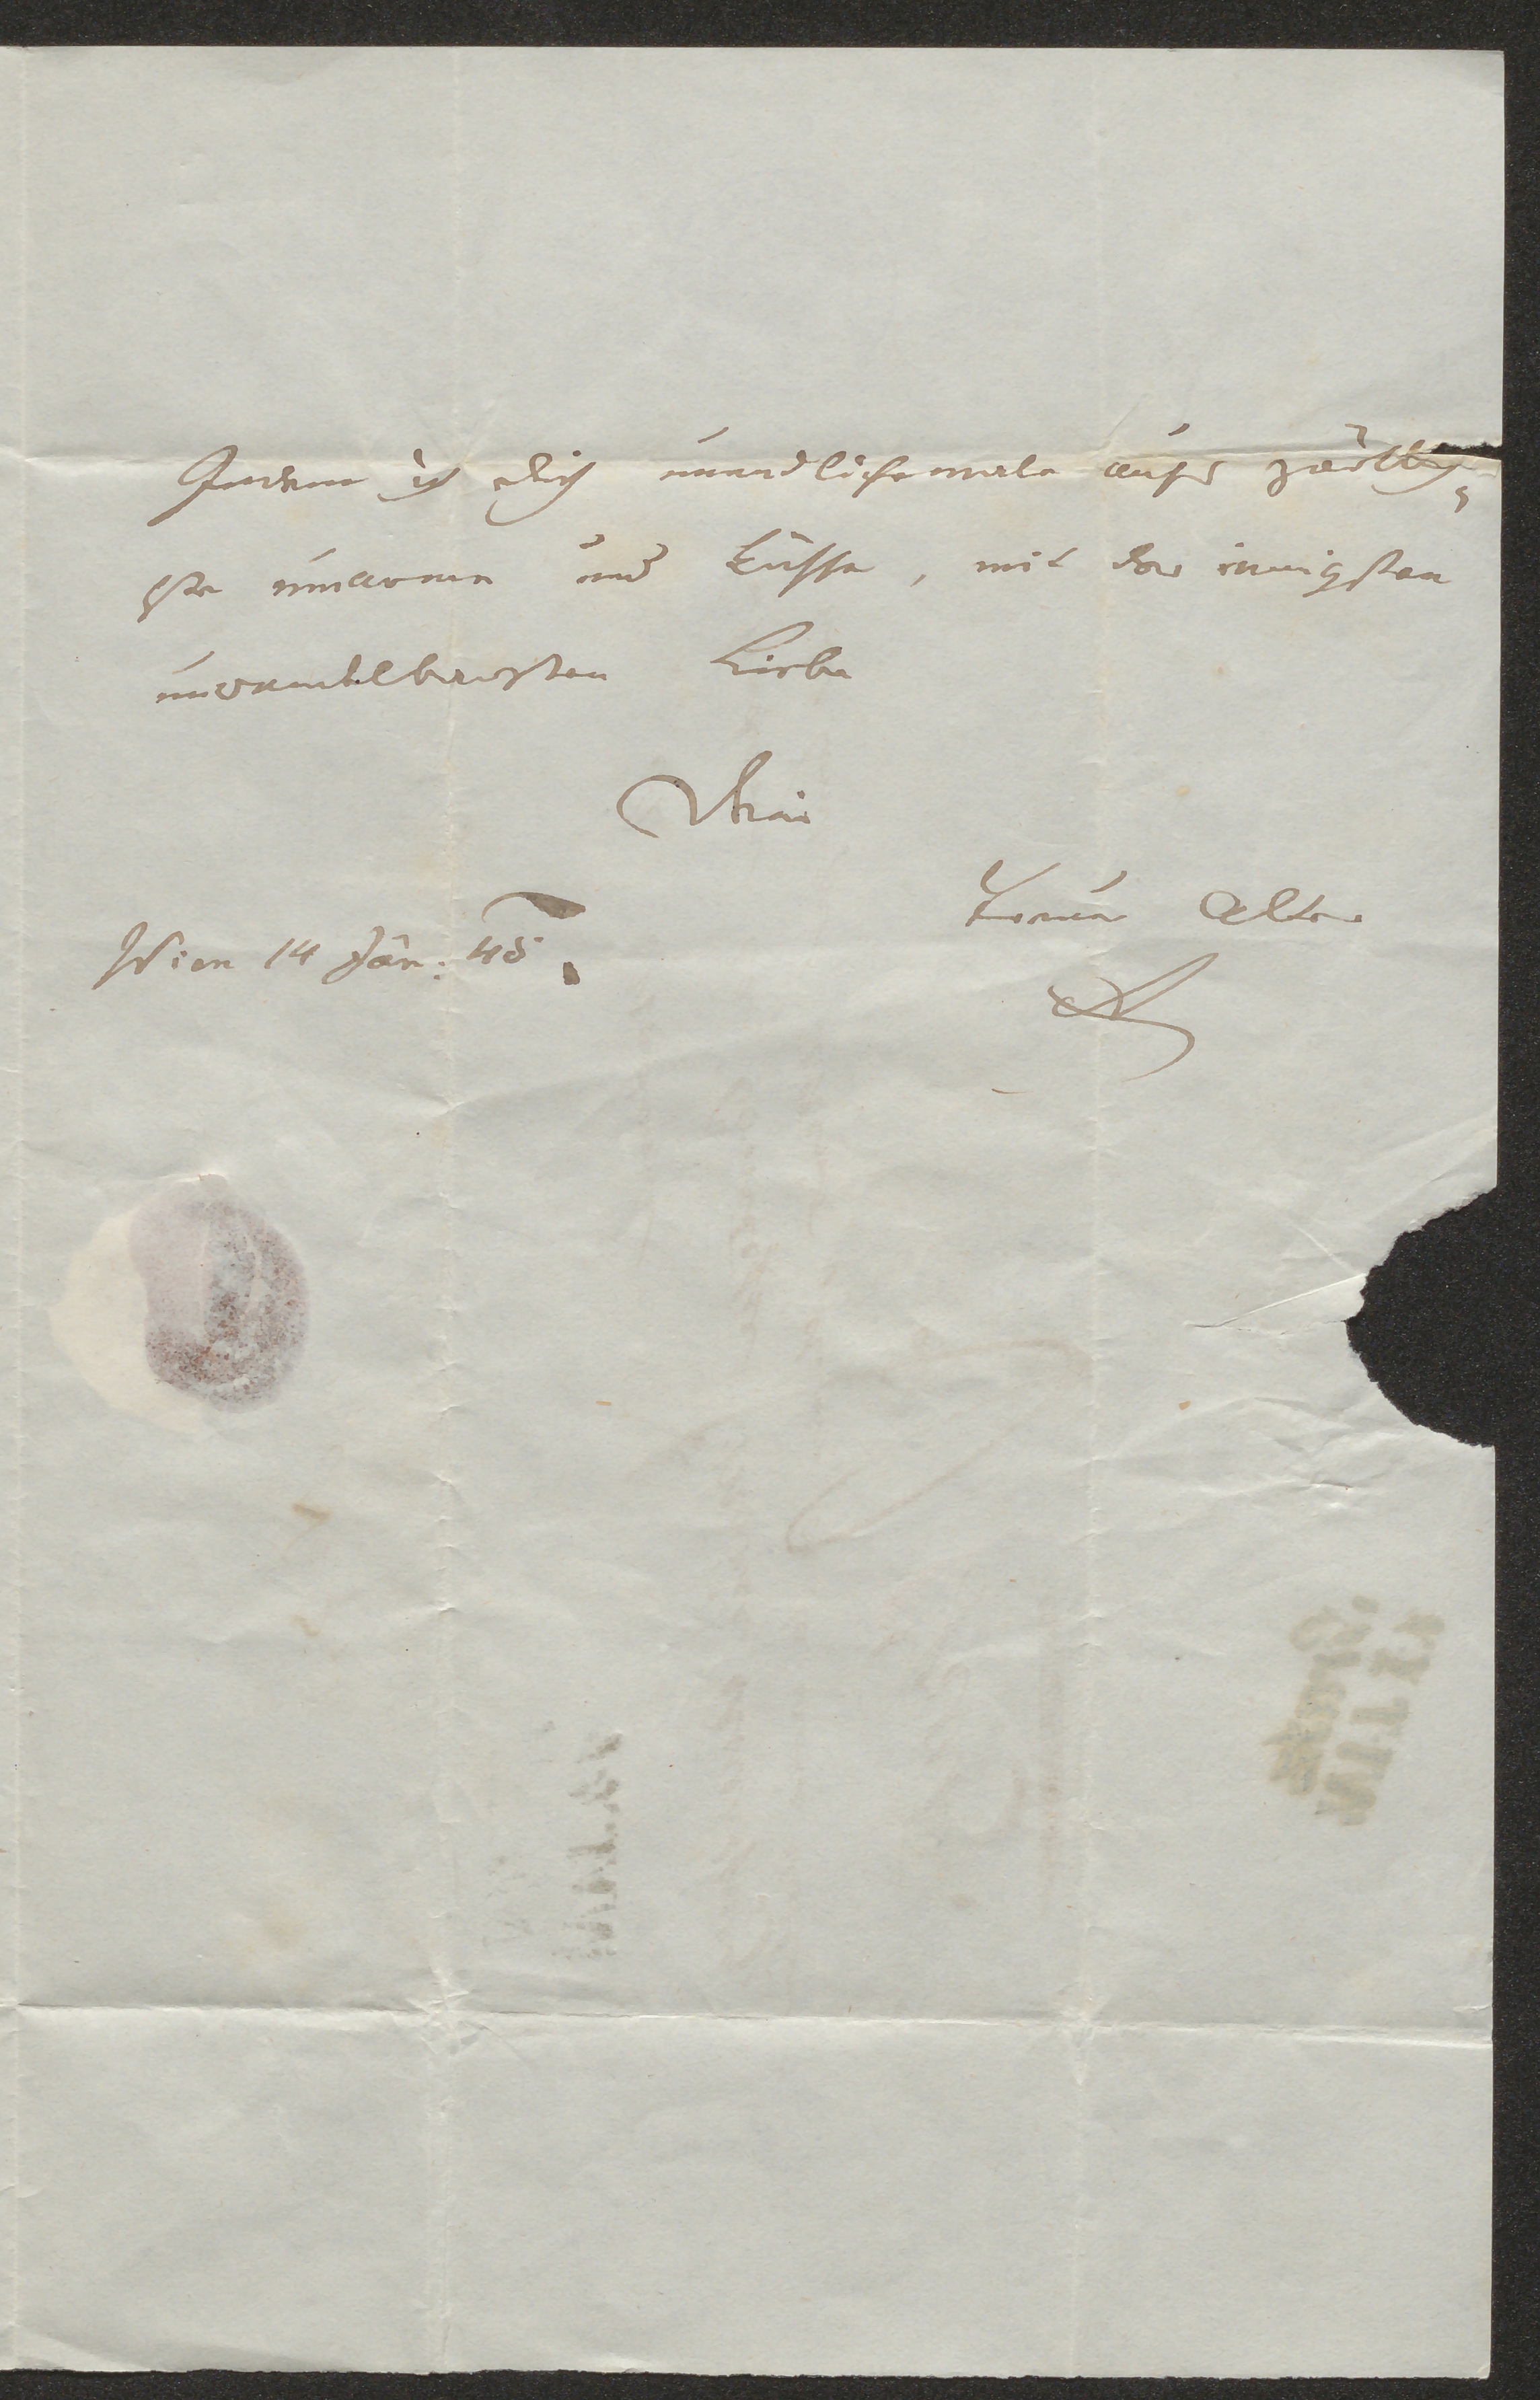 Indem ich dich unendlichemale aufs zärtlich,
ste umarme und küsse, mit der innigsten
unwandelbarsten Liebe
Dein
treuer Alter
Wien 14 Jän: 45.